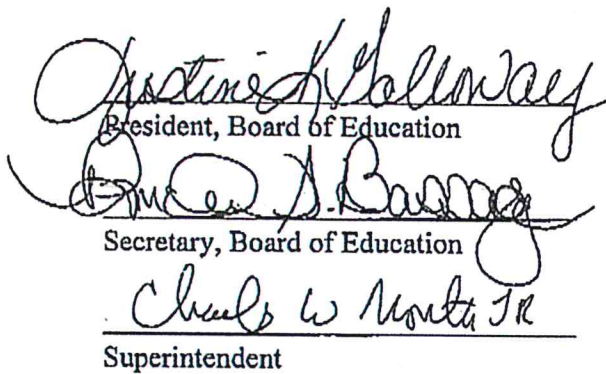 Justine K. Galloway
President, Board of Education
S.
Secretary, Board of Education
Charles W JR
Superintendent